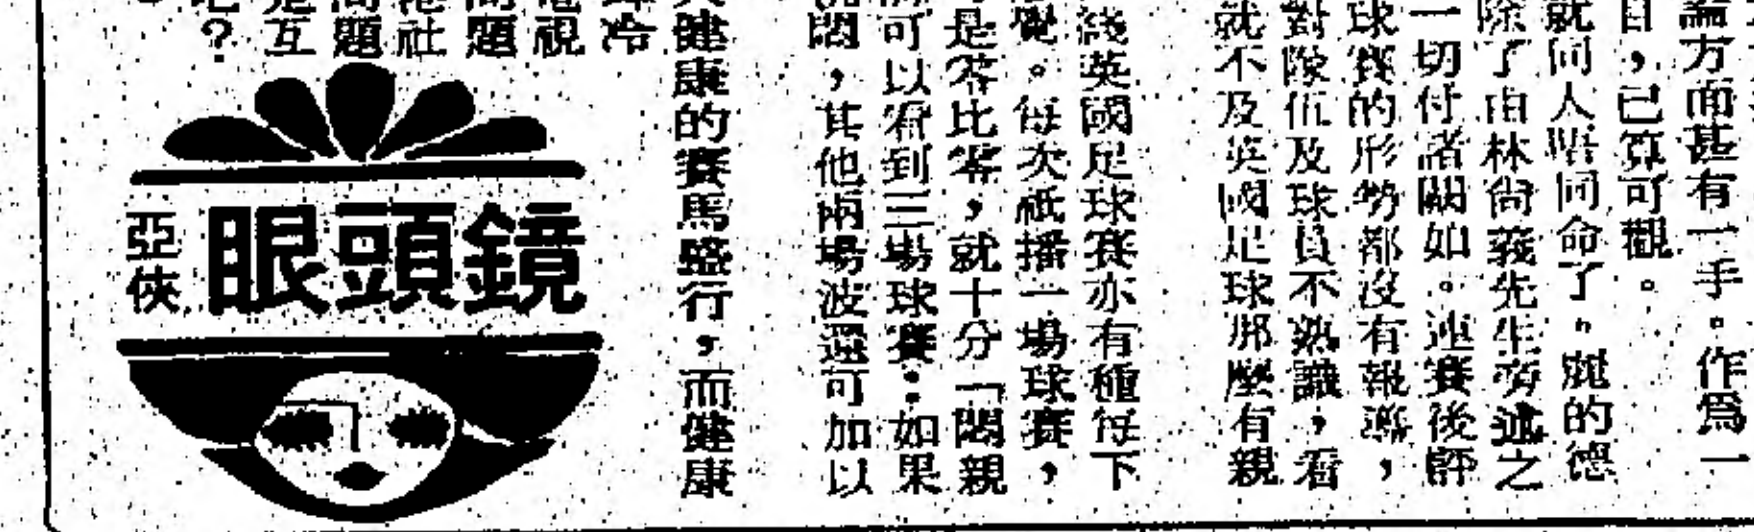 論方面甚有一手。作爲一
目,已算可觀。
就同人唔同命了。麗的德
除了由林尙義先生旁述之
一切付諸闕如。連賽後評
球賽的形勢都沒有報導,
對隊伍及球員不熟識,看
就不及英國足球那麼有親
綫英國足球賽亦有種每下
覺。每次祇播一場球賽,
是零比零,就十分「悶親
可以看到三場球賽:如果
悶,其他兩場波還可加以
健康的賽馬盛行,而健康
冷
視
問題
社
問題
互
吧?
鏡頭眼
亞俠